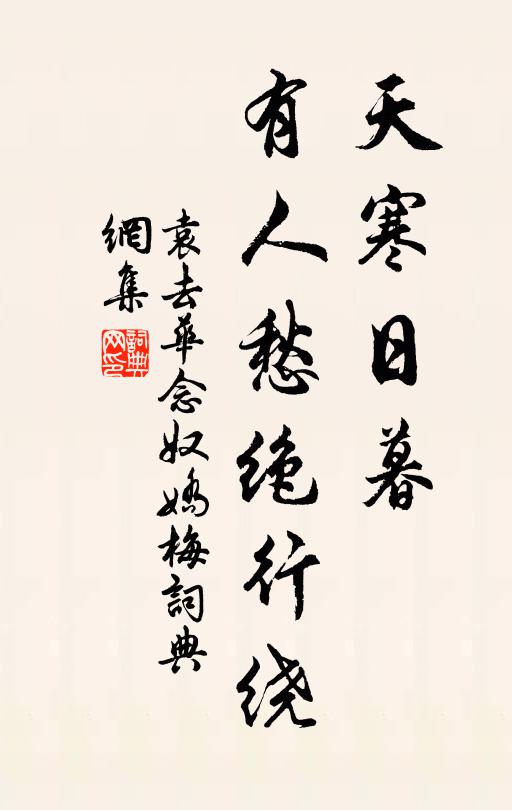 天寒日暮
有人愁绝行绕
袁去華念奴嬌梅詞典
網集
詞典
网印